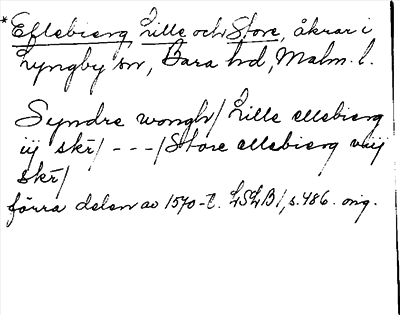 *Eflebierg, Lille och Store, åkrar i
Lyngby sn, Bara hd, Malm. l.
Syndre wongh/ Lille ellebierg
iij skr/ - - - / Store ellebierg viij
skr/
förra delen av 1570-t. LSLB 1, s. 486. orig.